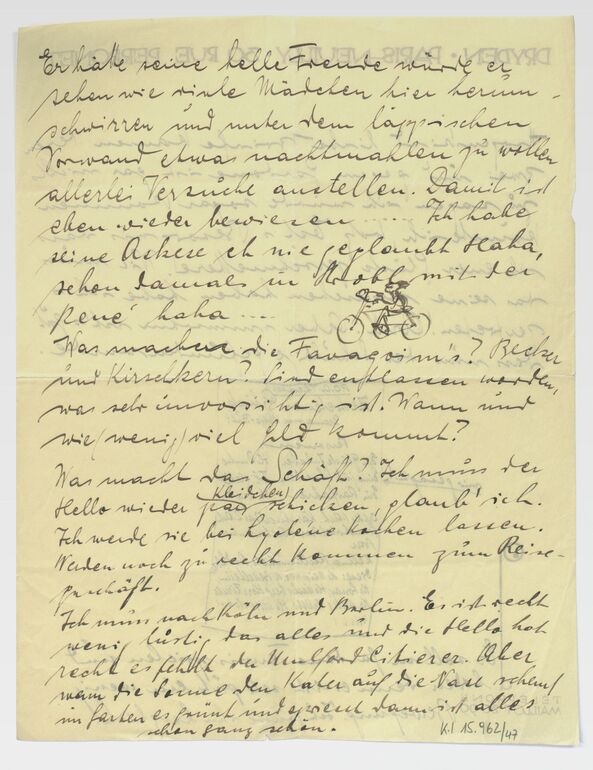 Er hätte seine helle Freude würde er
sehen wie viele Mädchen hier herum-
schwirren und unter dem läppischen
Vorwand etwas nachtmahlen zu wollen
allerlei Versuche anstellen. Damit ist
eben wieder bewiesen ...... Ich habe
seine Askese eh nie geglaubt Haha,
schon damals in mit der
René haha ....
Was machen die Favagoim's? Becker
und Kirschkern? Sind entlassen worden,
was sehr unvorsichtig ist. Wann und
wie (wenig) viel Geld kommt?
Was macht das Schäft? Ich muss der
Hello wieder (Kleidchen) paar schicken, glaub' ich.
Ich werde sie bei Hyolène kochen lassen.
Werden noch zu recht kommen zum Reise-
geschäft.
Ich muss nach Köln und Berlin. Es ist recht
wenig lustig das alles und die Hello hat
recht es fehlt der Citierer. Aber
wann die Sonne den Kater auf die Nase scheint
im Garten es grünt und dann ist alles
schon ganz schön.
K.I 15.962/47
DRYDEN · PARIS-NEUILLY · 30 RUE PERRONET